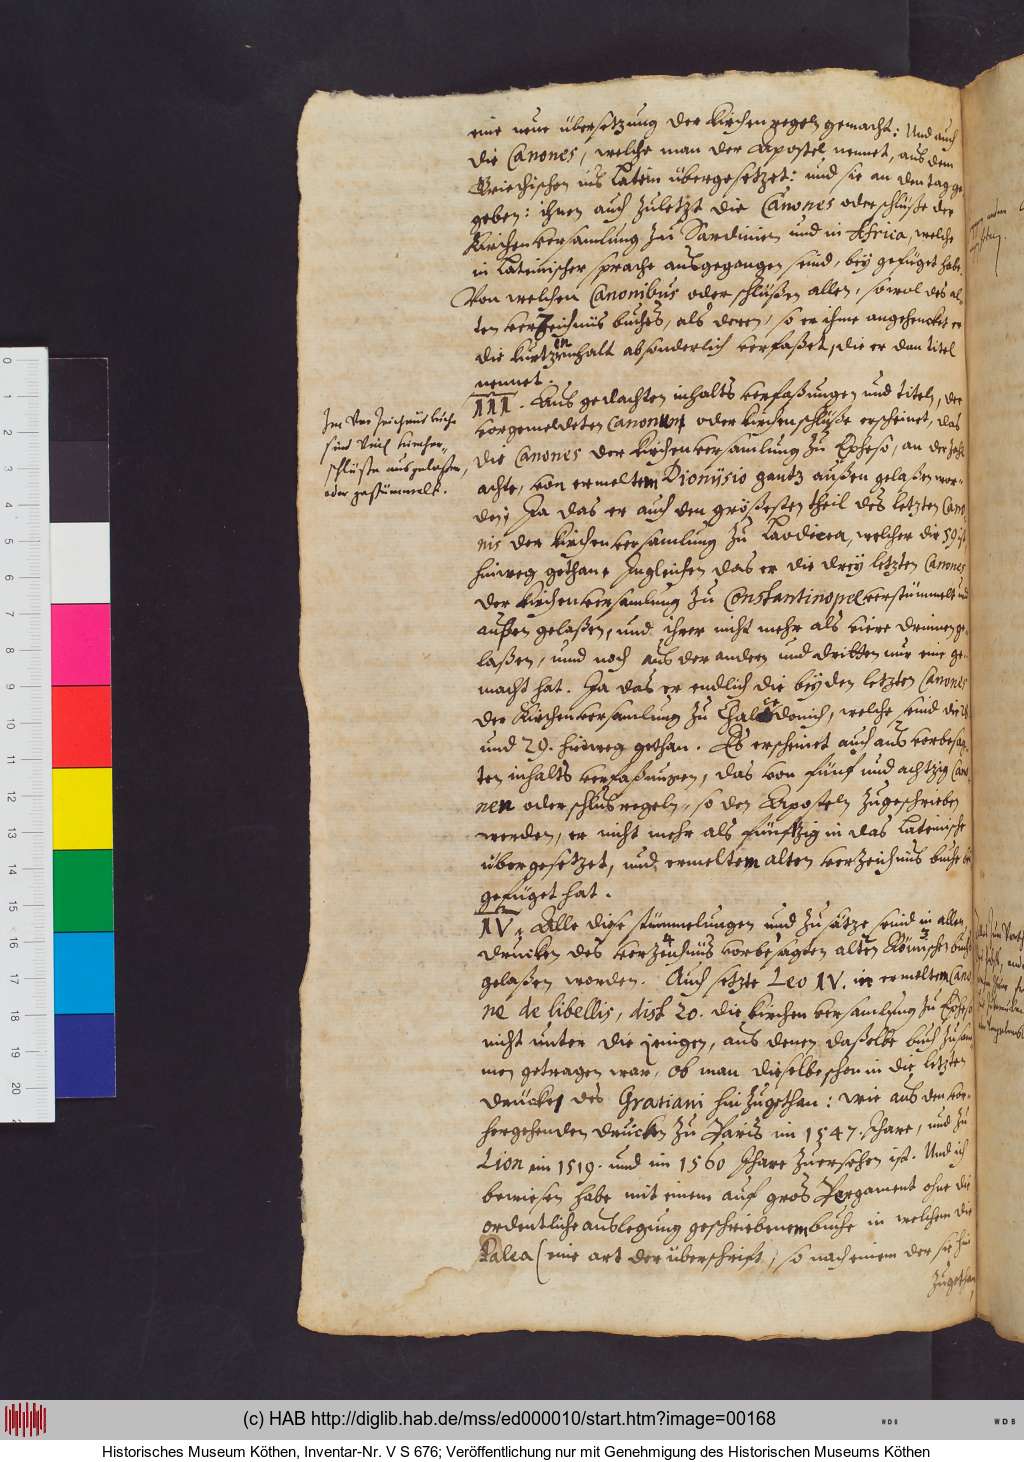 eine neue übersetzung der Kirchen regeln gemacht: Und auch
die Canones, welche man der Apostel nennet, aus dem
Griechischen ins Latein übergesetzet: und sie an den tag ge
geben: ihnen auch zuletzt die Canones oder schlüße der
Kirchenversamlung zu Sardinien und in Africa, welche
in Lateinischer sprache ausgegangen seind, bey gefüget habe.
Von welchen Canonibus oder schlüßen allen, sowol des al-
ten verzeichnüs buches, als deren, so er ihme angehencket er
die kurtzen inhalt absonderlich verfaßet, die er den titel
nennet.
III. Aus gedachten inhalts verfaßungen und titeln, der
vorgemeldeten Canonum oder kirchenschlüße erscheinet, das
die Canones der Kirchenversamlung zu Epheso, an der zahl
achte, von ermeltem Dionüsio gantz außen gelaßen wor-
den; Ja das er auch den größesten theil des letzten Cano
nis der Kirchenversamlung zu Laodicea, welcher der 59 ist,
hinweg gethan; Ingleichen das er die drey letzten Canones
der Kirchenversamlung zu Constantinopel verstümmelt und
außen gelaßen, und ihrer nicht mehr als viere drinnen ge-
laßen, und noch aus der andern und dritten nur eine ge-
macht hat. Ja das er endlich die beyden letzten Canones
der Kirchenversamlung zu Chalcedonien, welche seind die 28
und 29. hinweg gethan. Es erscheinet auch aus vorbesag-
ten inhalts verfaßungen, das von fünf und achtzig Cano-
nen oder schlus regeln, so den Aposteln zugeschrieben
werden, er nicht mehr als fünftzig in das Lateinische
übergesetzet, und ermeltem alten verzeichnüs buche bey
gefüget hat.
IV. Alle diese stümmelungen und zusätze seind in allen
drucken des verzeichnüs vorbesagten alten Römischen buchs
gelaßen worden. Auch setzte Leo IV. in ermeltem Cano
ne de libellis, dist 20. die kirchen versamlung zu Epheso
nicht unter die jenigen, aus denen daßelbe buch zusam
men getragen war, ob man dieselbe schon in die letzten
drücke des Gratiani hinzugethan: wie aus den vor-
hergehenden drucken zu Paris im 1547. Jhare, und zu
Lion im 1519. und im 1560 Jhare zuersehen ist. Und ich
bewiesen habe mit einem auf gros Pergament ohne die
ordentliche auslegung geschriebenem buche in welchem die
Palea (eine art der überschrift, so nach einem der sie hin
zugethan,
Im Verzeichnüs buche
sind viel kircher-
schlüsse ausgelaßen,
oder zustümmelt.
0
1
2
3
4
5
6
7
8
9
10
11
12
13
14
15
16
17
18
19
20
(c) HAB http://diglib.hab.de/mss/ed000010/start.htm?image=00168
WDB
WDB
Historisches Museum Köthen, Inventar-Nr. V S 676; Veröffentlichung nur mit Genehmigung des Historischen Museums Köthen